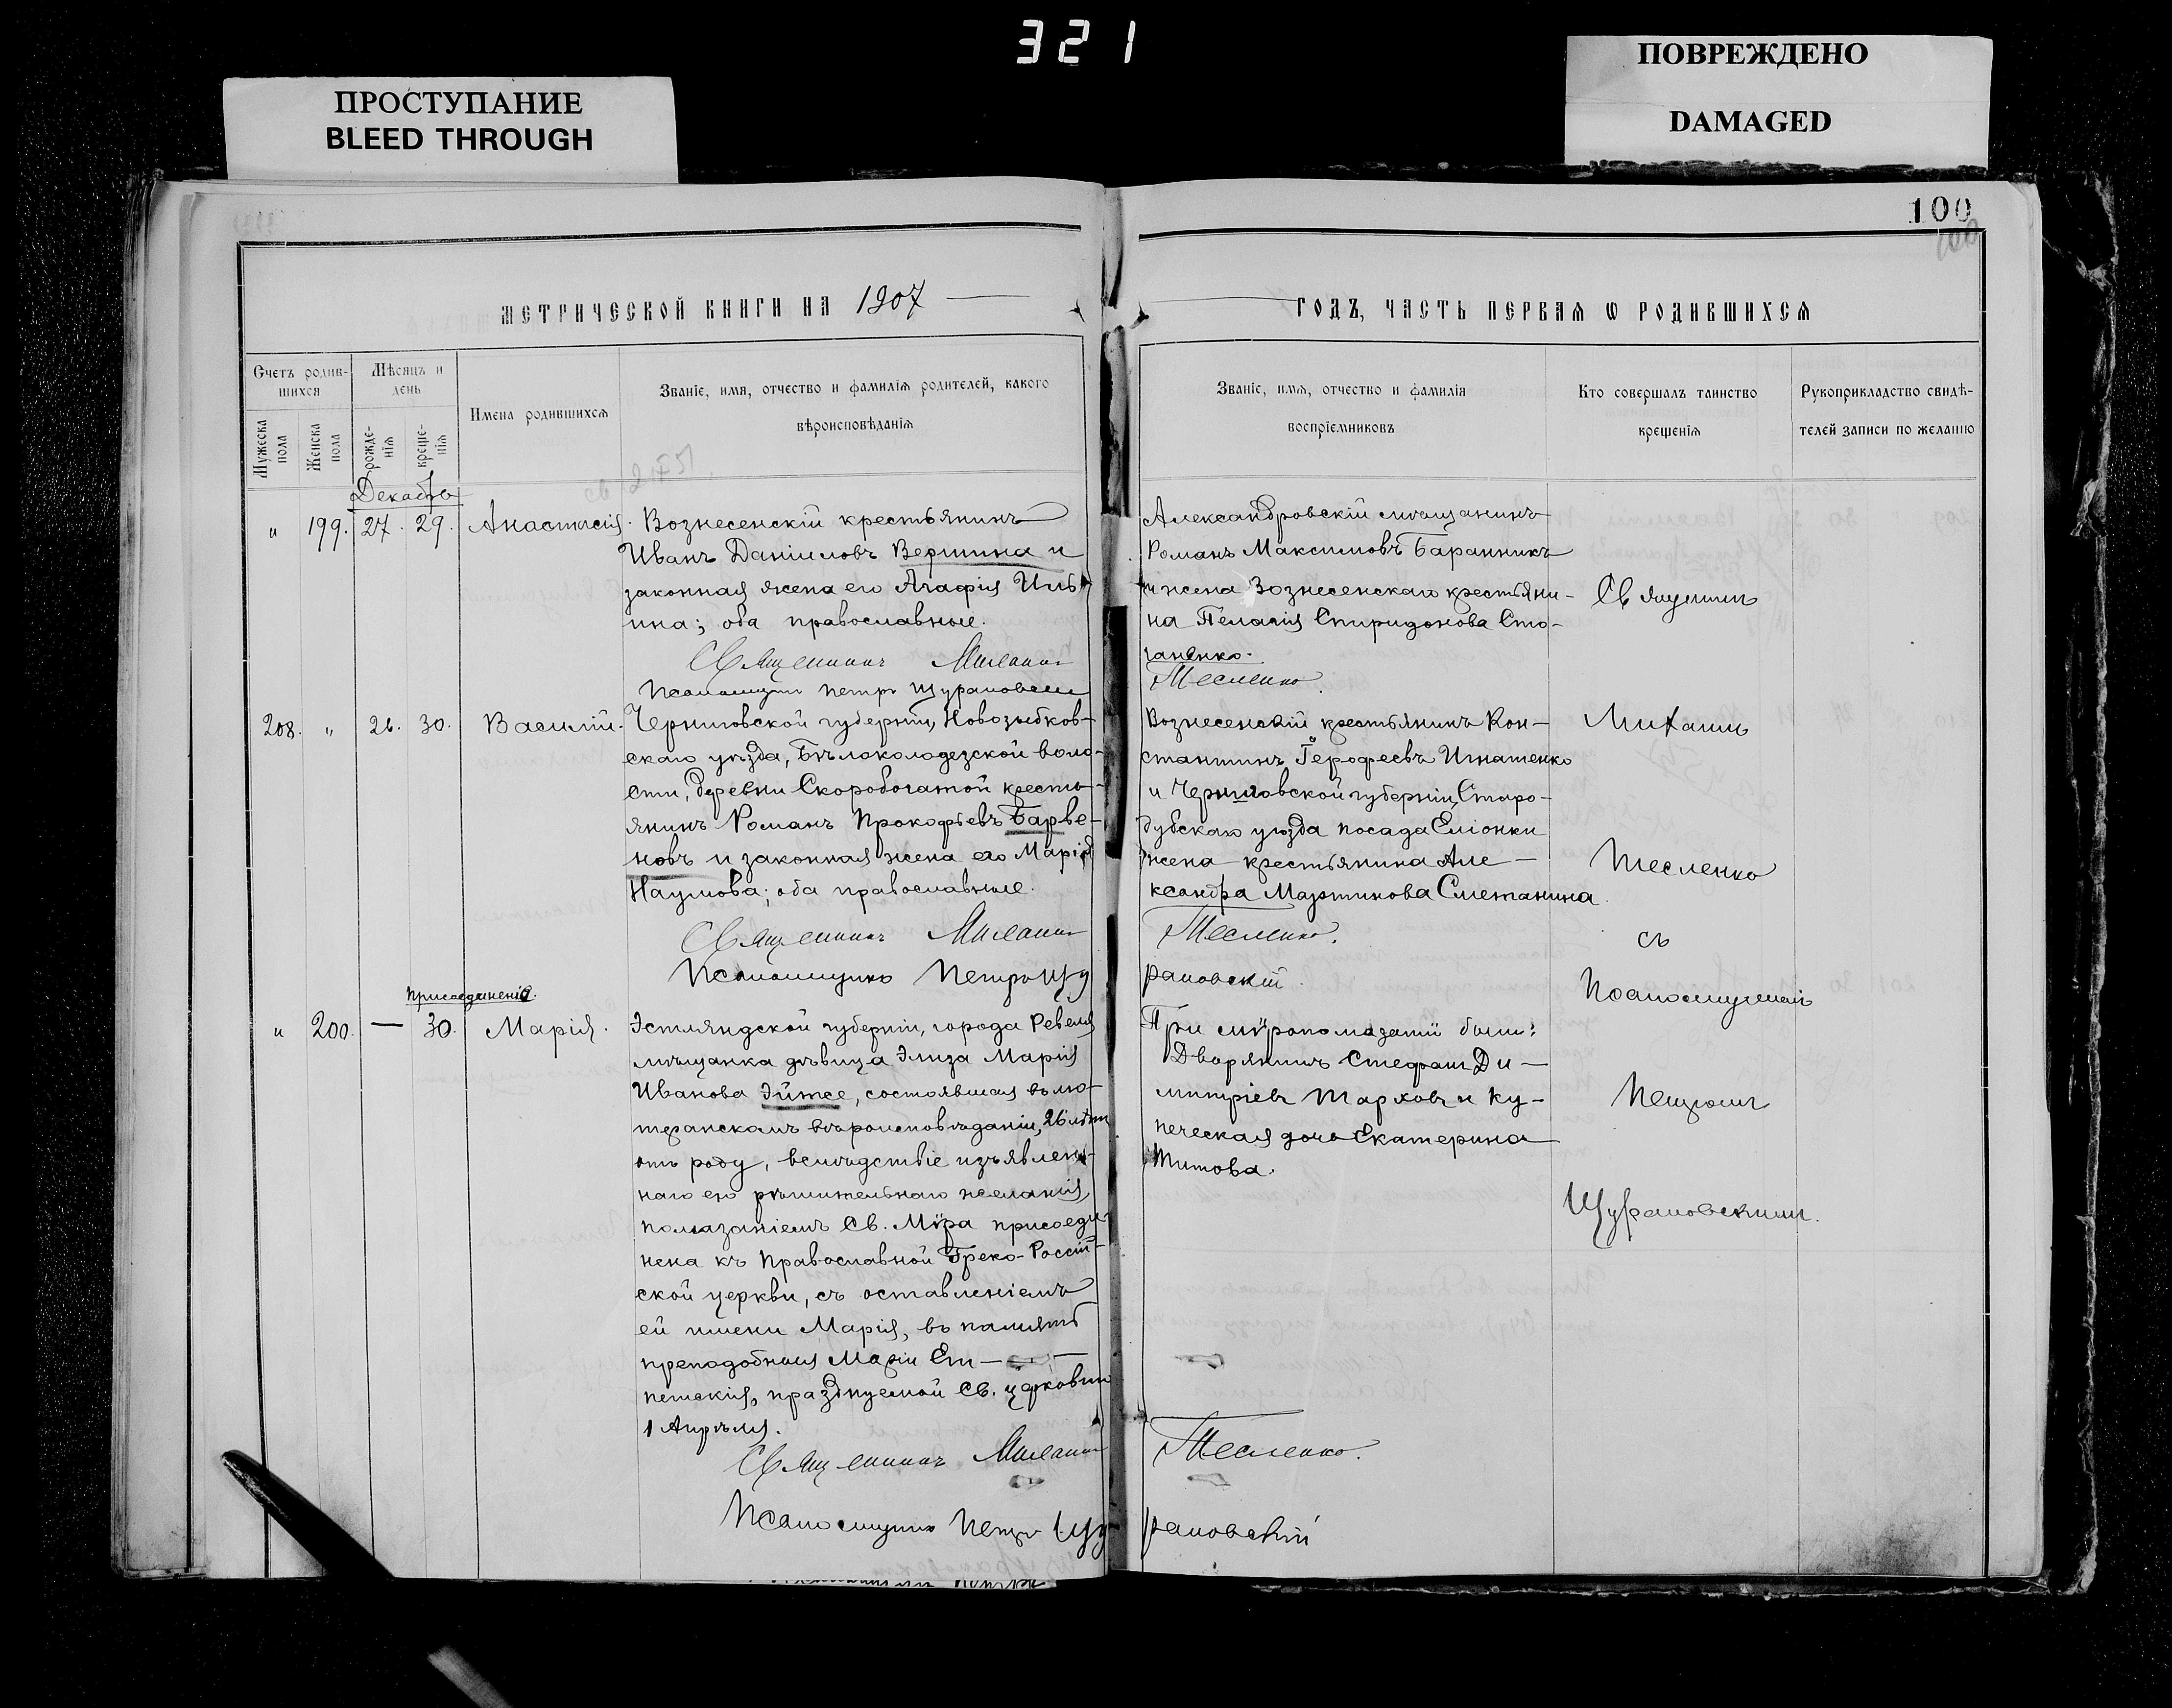 321
ПРОСТУПАНИЕ
BLEED THROUGH
ПОВРЕЖДЕНО
DAMAGED
100
100
МЕТРИЧЕСКОЙ КНИГИ НА 1907
ГОДЪ, ЧАСТЬ ПЕРВАЯ Ѡ РОДИВШИХСЯ
Счетъ родив-
шихся
Мужеска пола
Женска пола
Мѣсяцъ и
день
рожде-
нія
креще-
нія
Имена родившихся
Званіе, имя, отчество и фамилія родителей, какого
вѣроисповѣданія
Званіе, имя, отчество и фамилія
воспріемниковъ
Кто совершалъ таинство
крещенія
Рукоприкладство свидѣ-
телей записи по желанію
Декабрь
" 199. 27. 29. Анастасія.
Вознесенскій крестьянинъ
Иванъ Даніиловъ Вершина и
законная жена его Агафія Иль
ина; оба православные.
Священникъ Михаилъ
Псаломщикъ Петръ Щурановскій
Александровскій мѣщанинъ
Романъ Максимовъ Баранникъ
и жена Вознесенскаго крестьяни-
на Пелагія Спиридонова Сто-
ганенко.
Тесленко.
208. " 26. 30. Василій.
Черниговской губерніи, Новозыбков-
скаго уѣзда, Бѣлоколодезской воло-
сти, деревни Скоробогатой кресть-
янинъ Романъ Прокофьевъ Барве-
новъ и законная жена его Марія
Наумова; оба православные.
Священникъ Михаилъ
Псаломщикъ Петръ Щу
Вознесенскій крестьянинъ Кон-
стантинъ Герофеевъ Игнатенко
и Черниговской губерніи, Старо-
дубскаго уѣзда посада Еліонки
жена крестьянина Але-
ксандра Мартинова Сметанина.
Тесленко.
рановскій.
присоединенія.
" 200. — 30. Марія.
Эстляндской губерніи, города Ревеля
мѣщанка дѣвица Элиза Марія
Иванова Эйтсе, состоявшая въ лю-
теранскомъ вѣроисповѣданіи, 26 лѣтъ
отъ роду, вслѣдствіе изъявлен-
наго ею рѣшительнаго желанія,
помазаніемъ Св. Мѵра присоеди
нена къ Православной Греко-Россій-
ской церкви, съ оставленіемъ
ей имени Марія, въ память
преподобныя Маріи Еги-
петскія, празднуемой Св. церковію
1 Апрѣля.
Священникъ Михаилъ
Псаломщикъ Петръ Щу
При мѵропомазаніи были:
Дворянинъ Стефанъ Ди-
митріевъ Тарховъ и ку-
печеская дочь Екатерина
Титова.
Тесленко.
рановскій
Священникъ
Михаилъ
Тесленко
съ
Псаломщикомъ
Петромъ
Щурановскимъ.